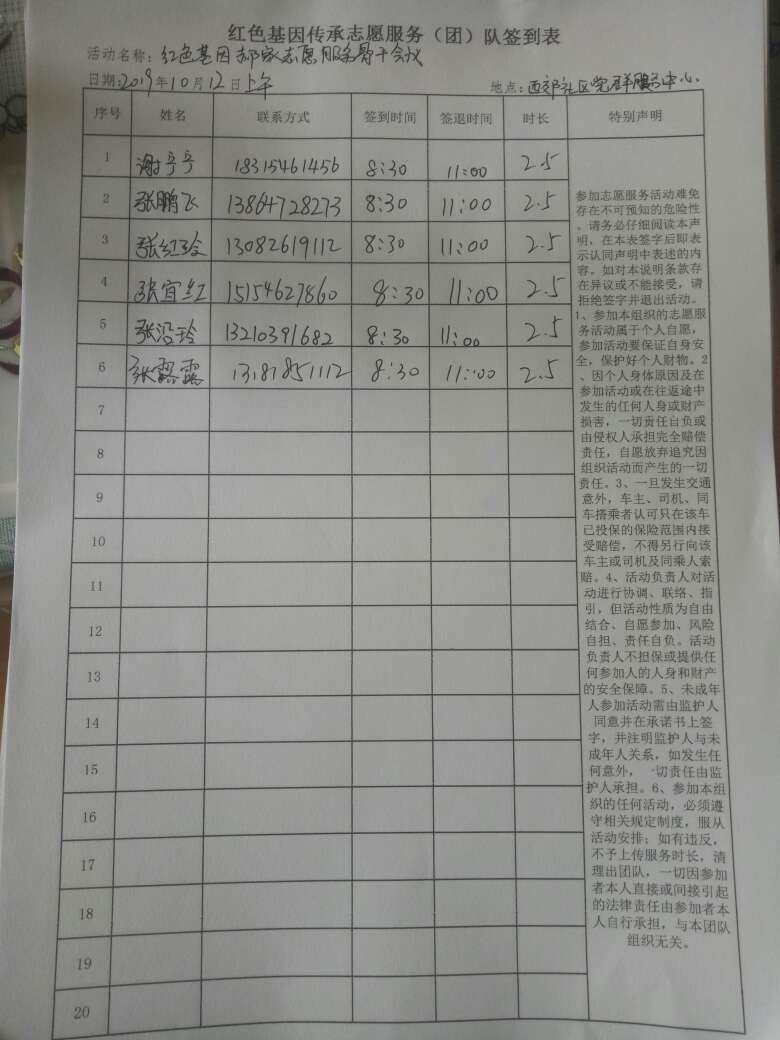 红色基因传承志愿服务（团）队签到表
活动名称：红色基因郝家志愿服务骨干会议
日期：2019年10月12日上午 地点：西郊社区党群服务中心
序号 姓名 联系方式 签到时间 签退时间 时长 特别声明
1 谢亭亭 18315461456 8:30 11:00 2.5
2 张鹏飞 13864728273 8:30 11:00 2.5
3 张红玲 13082619112 8:30 11:00 2.5
4 张宜红 15154627860 8:30 11:00 2.5
5 张沿玲 13210391682 8:30 11:00 2.5
6 张露露 13181851112 8:30 11:00 2.5
7
8
9
10
11
12
13
14
15
16
17
18
19
20
参加志愿服务活动难免
存在不可预知的危险性
、请务必仔细阅读本声
明，在本表签字后即表
示认同声明中表述的内
容。如对本说明条款存
在异议或不能接受，请
拒绝签字并退出活动。
1、参加本组织的志愿服
务活动属于个人自愿，
参加活动要保证自身安
全，保护好个人财物。2
、因个人身体原因及在
参加活动或在往返途中
发生的任何人身或财产
损害，一切责任自负或
由侵权人承担完全赔偿
责任，自愿放弃追究因
组织活动而产生的一切
责任。3、一旦发生交通
意外，车主、司机、同
车搭乘者认可只在该车
已投保的保险范围内接
受赔偿，不得另行向该
车主或司机及同乘人索
赔。4、活动负责人对活
动进行协调、联络、指
引，但活动性质为自由
结合、自愿参加、风险
自担、责任自负。活动
负责人不担保或提供任
何参加人的人身和财产
的安全保障。5、未成年
人参加活动需由监护人
同意并在承诺书上签
字，并注明监护人与未
成年人关系，如发生任
何意外，一切责任由监
护人承担。6、参加本组
织的任何活动，必须遵
守相关规定制度，服从
活动安排；如有违反，
不予上传服务时长，清
理出团队，一切因参加
者本人直接或间接引起
的法律责任由参加者本
人自行承担，与本团队
组织无关。